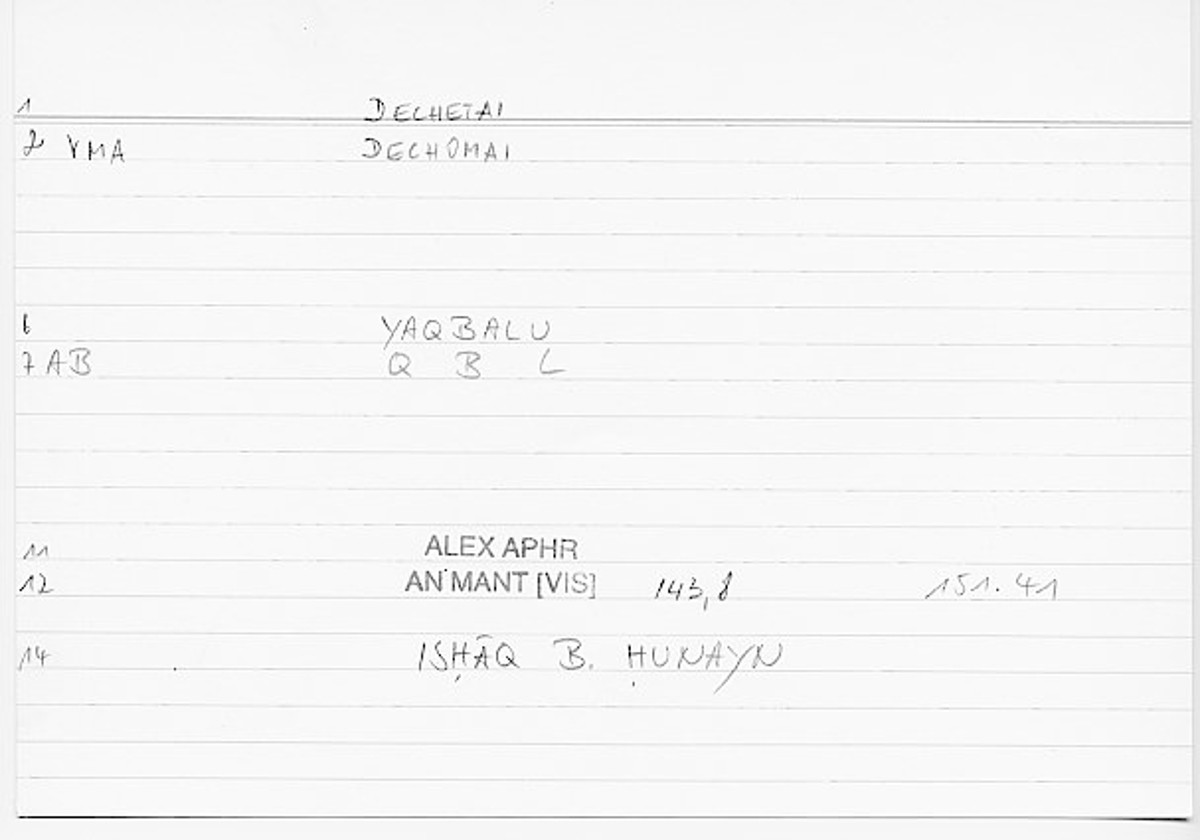 1 DECHETAI
2 VMA DECHOMAI
6 YAQBALU
7 AB Q B L
11 ALEX APHR
12 AN MANT [VIS] 143,8 151.41
14 ISḤĀQ B. ḤUNAYN